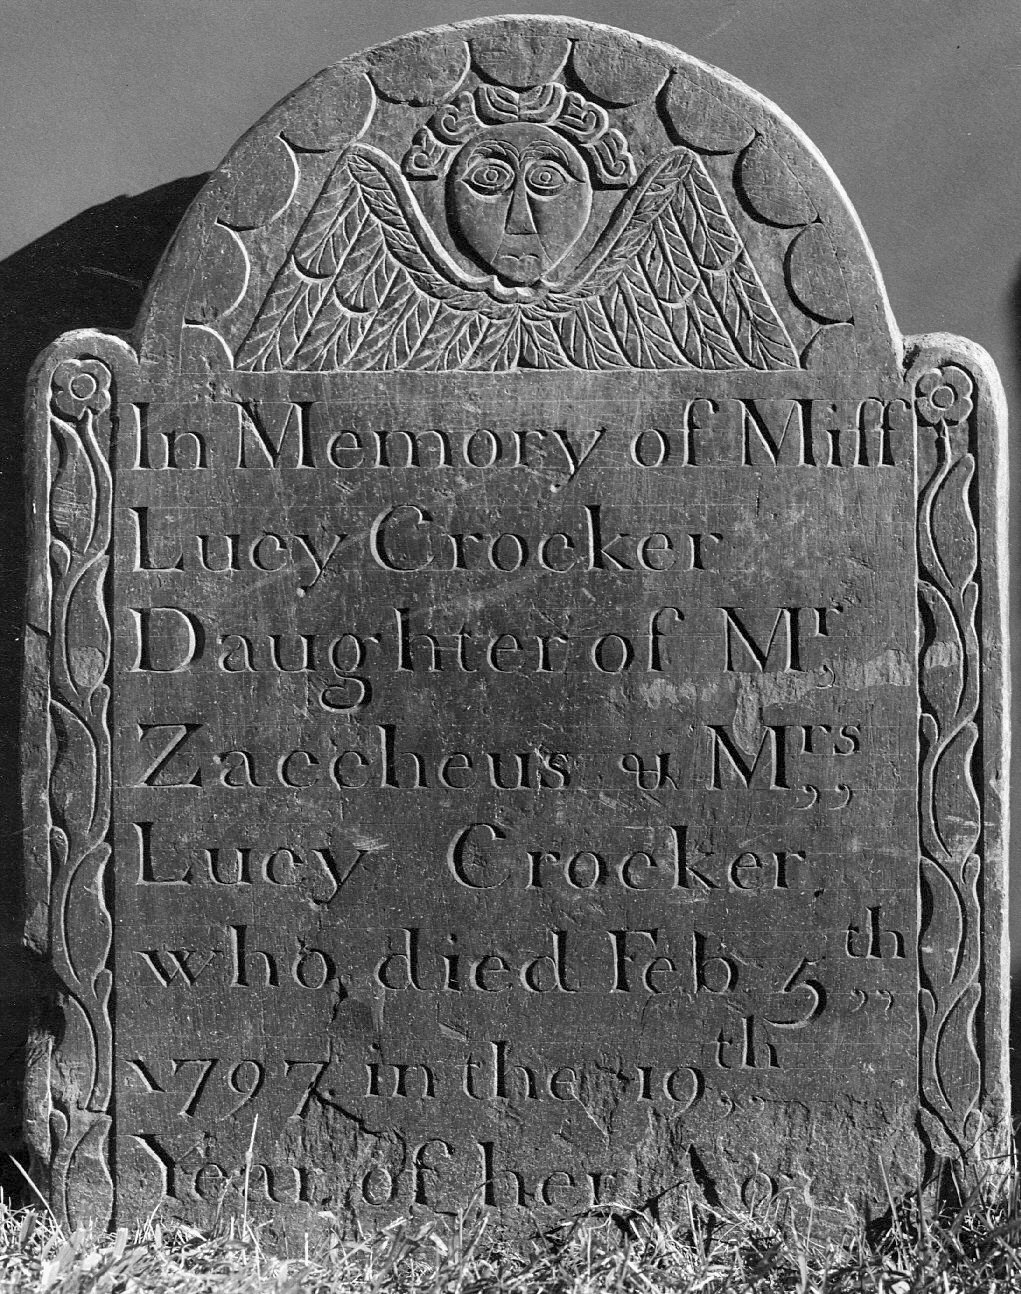 In Memory of Miſſ
Lucy Crocker
Daughter of Mʳ,
Zaccheus & Mʳˢ,,
Lucy Crocker.
who, died Feb 5ᵗʰ,,
1797 in the 19ᵗʰ,,
Year of her